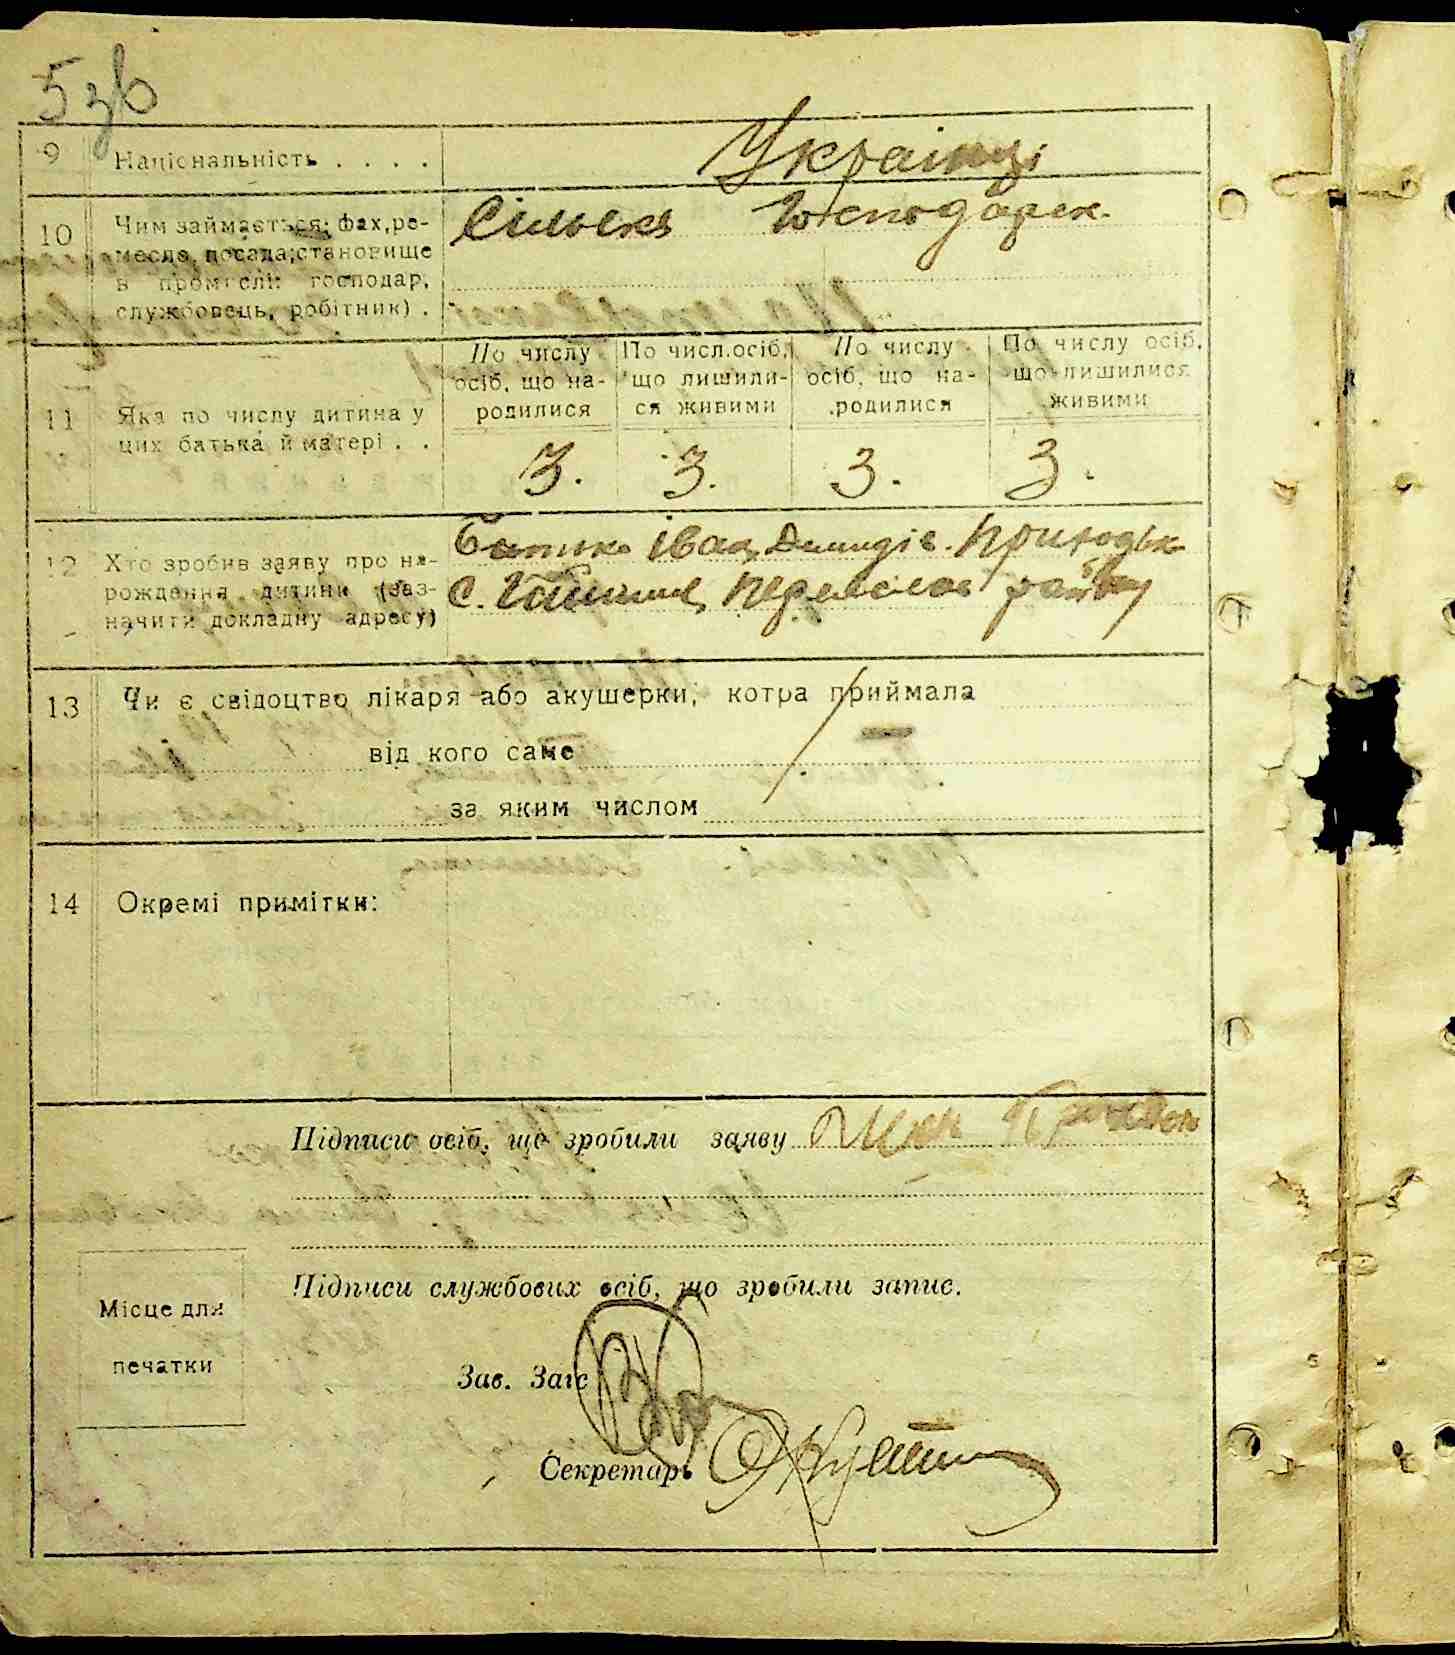 5 зв
9 Національність . . . . Українці
10 Чим займається: фах, ре- Сільськ Господарск.
месло, посада; становище
в промислі: господар,
службовець, робітник) .
11 Яка по числу дитина у
цих батька й матері . .
По числу осіб, що на-родилися
По числ. осіб, що лишили-ся живими
По числу осіб, що на-родилися
По числу осіб, що лишилися живими
3. 3. 3. 3.
12 Хто зробив заяву про на- Батько Іван Демидів. Приходько
рождення дитини (заз- с. Переяслав району
начити докладну адресу)
13 Чи є свідоцтво лікаря або акушерки, котра приймала
від кого саме
за яким числом
14 Окремі примітки:
Підписи осіб, що зробили заяву
Підписи службових осіб, що зробили запис.
Місце для
печатки
Зав. Загс
Секретарь